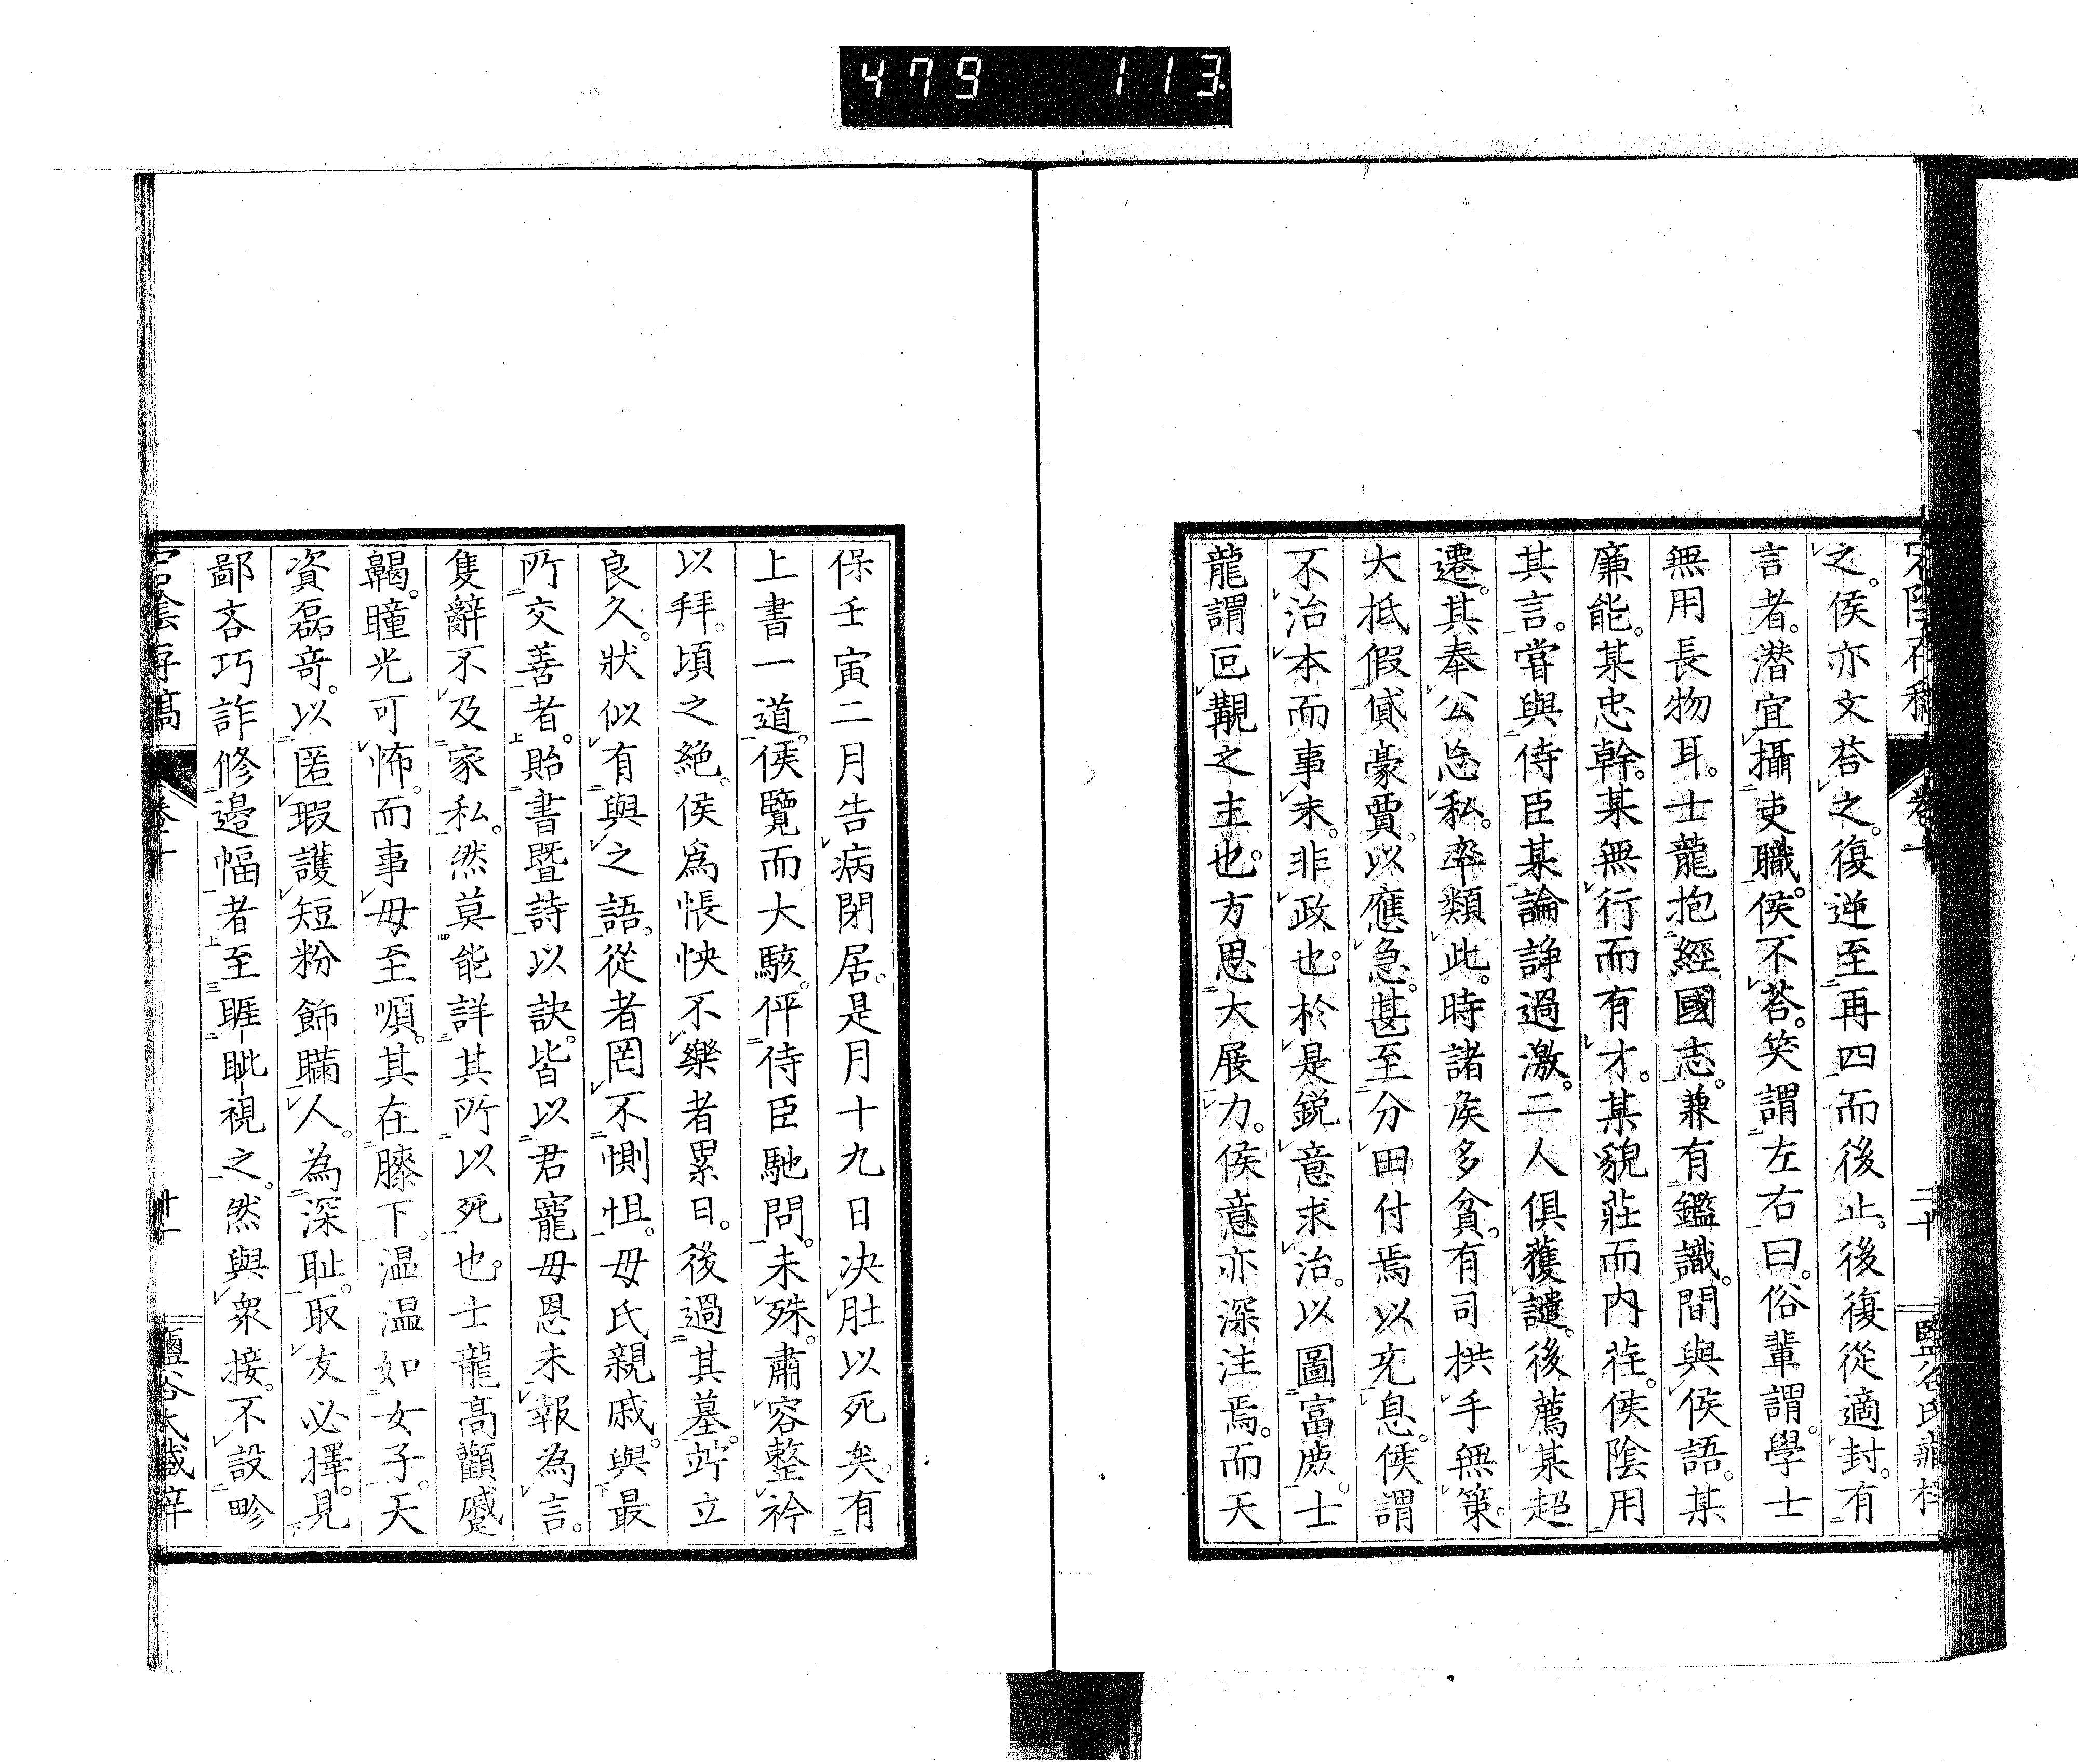 479 113
宕陰存稿 卷十 二十 鹽谷氏藏梓
之。侯亦文荅之。復逆至再四而後止。後復從適封。有
言者。潛宜攝吏職。侯不荅。笑謂左右曰。俗輩謂。學士
無用長物耳。士龍抱經國志。兼有鑑識。間與侯語。某
廉能。某忠幹。某無行而有才。某貌莊而内荏。侯陰用
其言。嘗與侍臣某論諍過激。二人俱獲譴。後薦某超
遷。其奉公忘私。率類此。時諸矦多貧。有司拱手無策。
大抵假貸豪賈。以應急。甚至分田付焉以充息。侯謂
不治本而事末。非政也。於是鋭意求治。以圖富庶。士
龍謂叵覯之主也。方思大展力。侯意亦深注焉。而天
保壬寅二月告病閉居。是月十九日决肚以死矣。有
上書一道。侯覽而大駭。伻侍臣馳問。未殊。肅容整衿
以拜。頃之絶。侯爲悵怏不樂者累日。後過其墓。竚立
良久。狀似有與之語。從者罔不惻怛。毋氏親戚。與最
所交善者。貽書暨詩以訣。皆以君寵毋恩未報為言。
隻辭不及家私。然莫能詳其所以死也。士龍高顴蹙
齃。瞳光可怖。而事毋至順。其在膝下。温温如女子。天
資磊竒。以匿瑕護短粉飾瞞人。為深耻。取友必擇。見
鄙吝巧詐修邊幅者至睚眦視之。然與衆接。不設畛
宕陰存稿 卷十 廿一 鹽谷氏藏梓